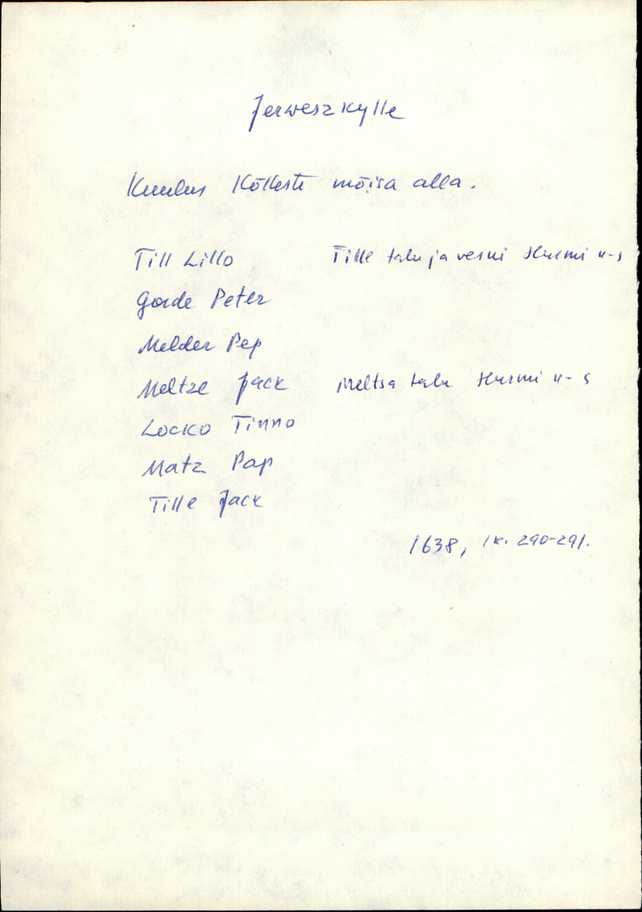 Jerweszkylle
Kuulus Kökesti mõisa alla.
Till Lillo Tille talu ja veski Hurmi k-s
Gorde Peter
Melder Pep
Meltze Jack Meltsa talu Hurmi k-s
Locko Tinno
Matz Pap
Tille Jack
1638, lk. 290-291.